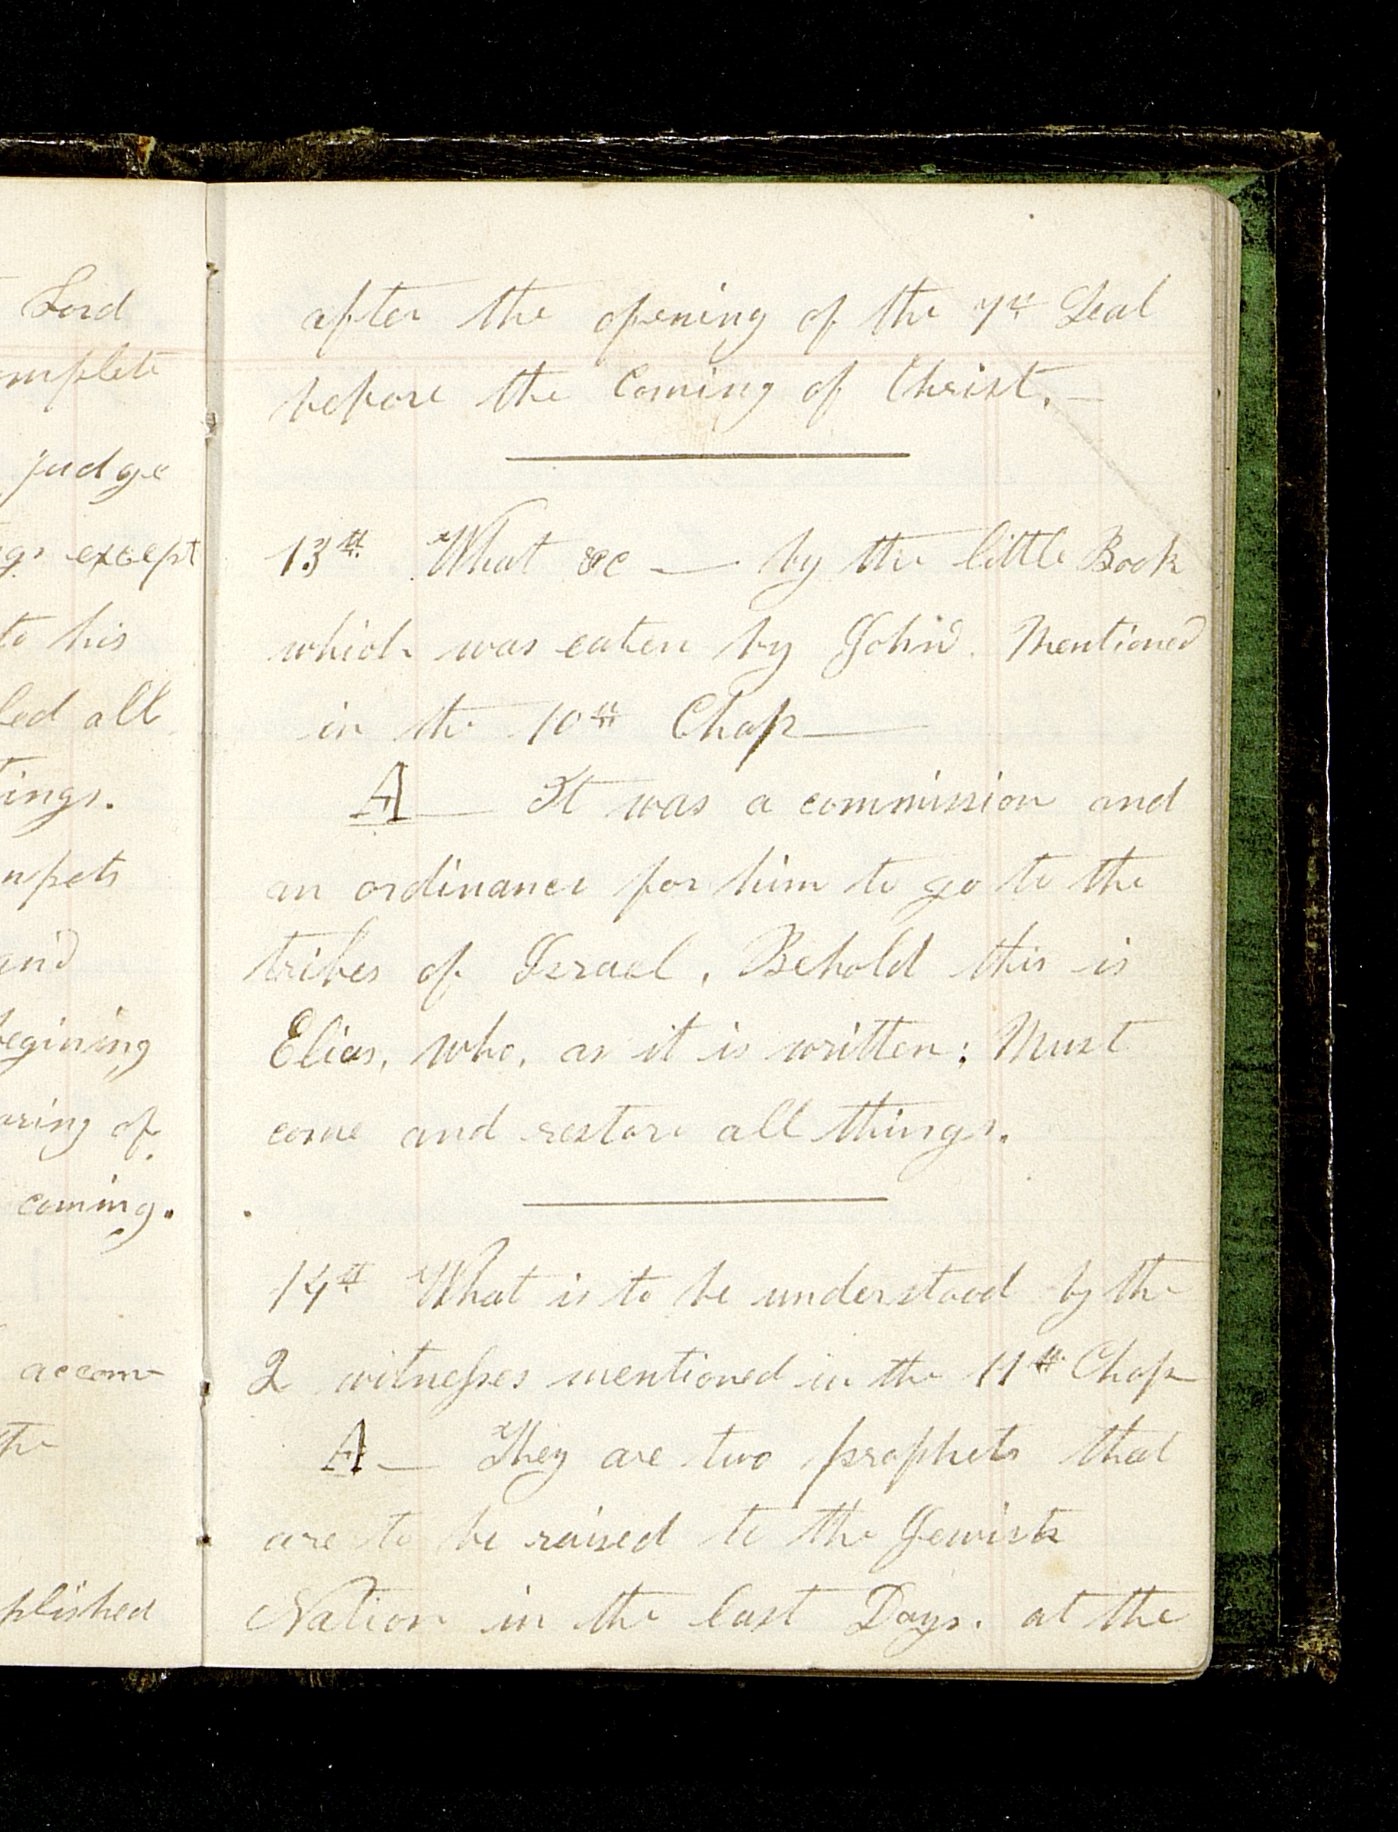 Lord
mplete
judge
gs except
to his
led all
ings.
mpets
and
begining
aring of
coming.
accom
the
plished
after the opening of the 7th Seal
before the Coming of Christ. —
13th. What &c — by the little Book
which was eaten by John. Mentioned
in the 10th Chap —
A — It was a commission and
an ordinance for him to go to the
tribes of Israel, Behold this is
Elias, who, as it is written; Must
come and restore all things.
14th. What is to be understood by the
2 witnesses mentioned in the 11th Chap
A — They are two prophets that
are to be raised to the Jewish
Nation in the last Days. at the